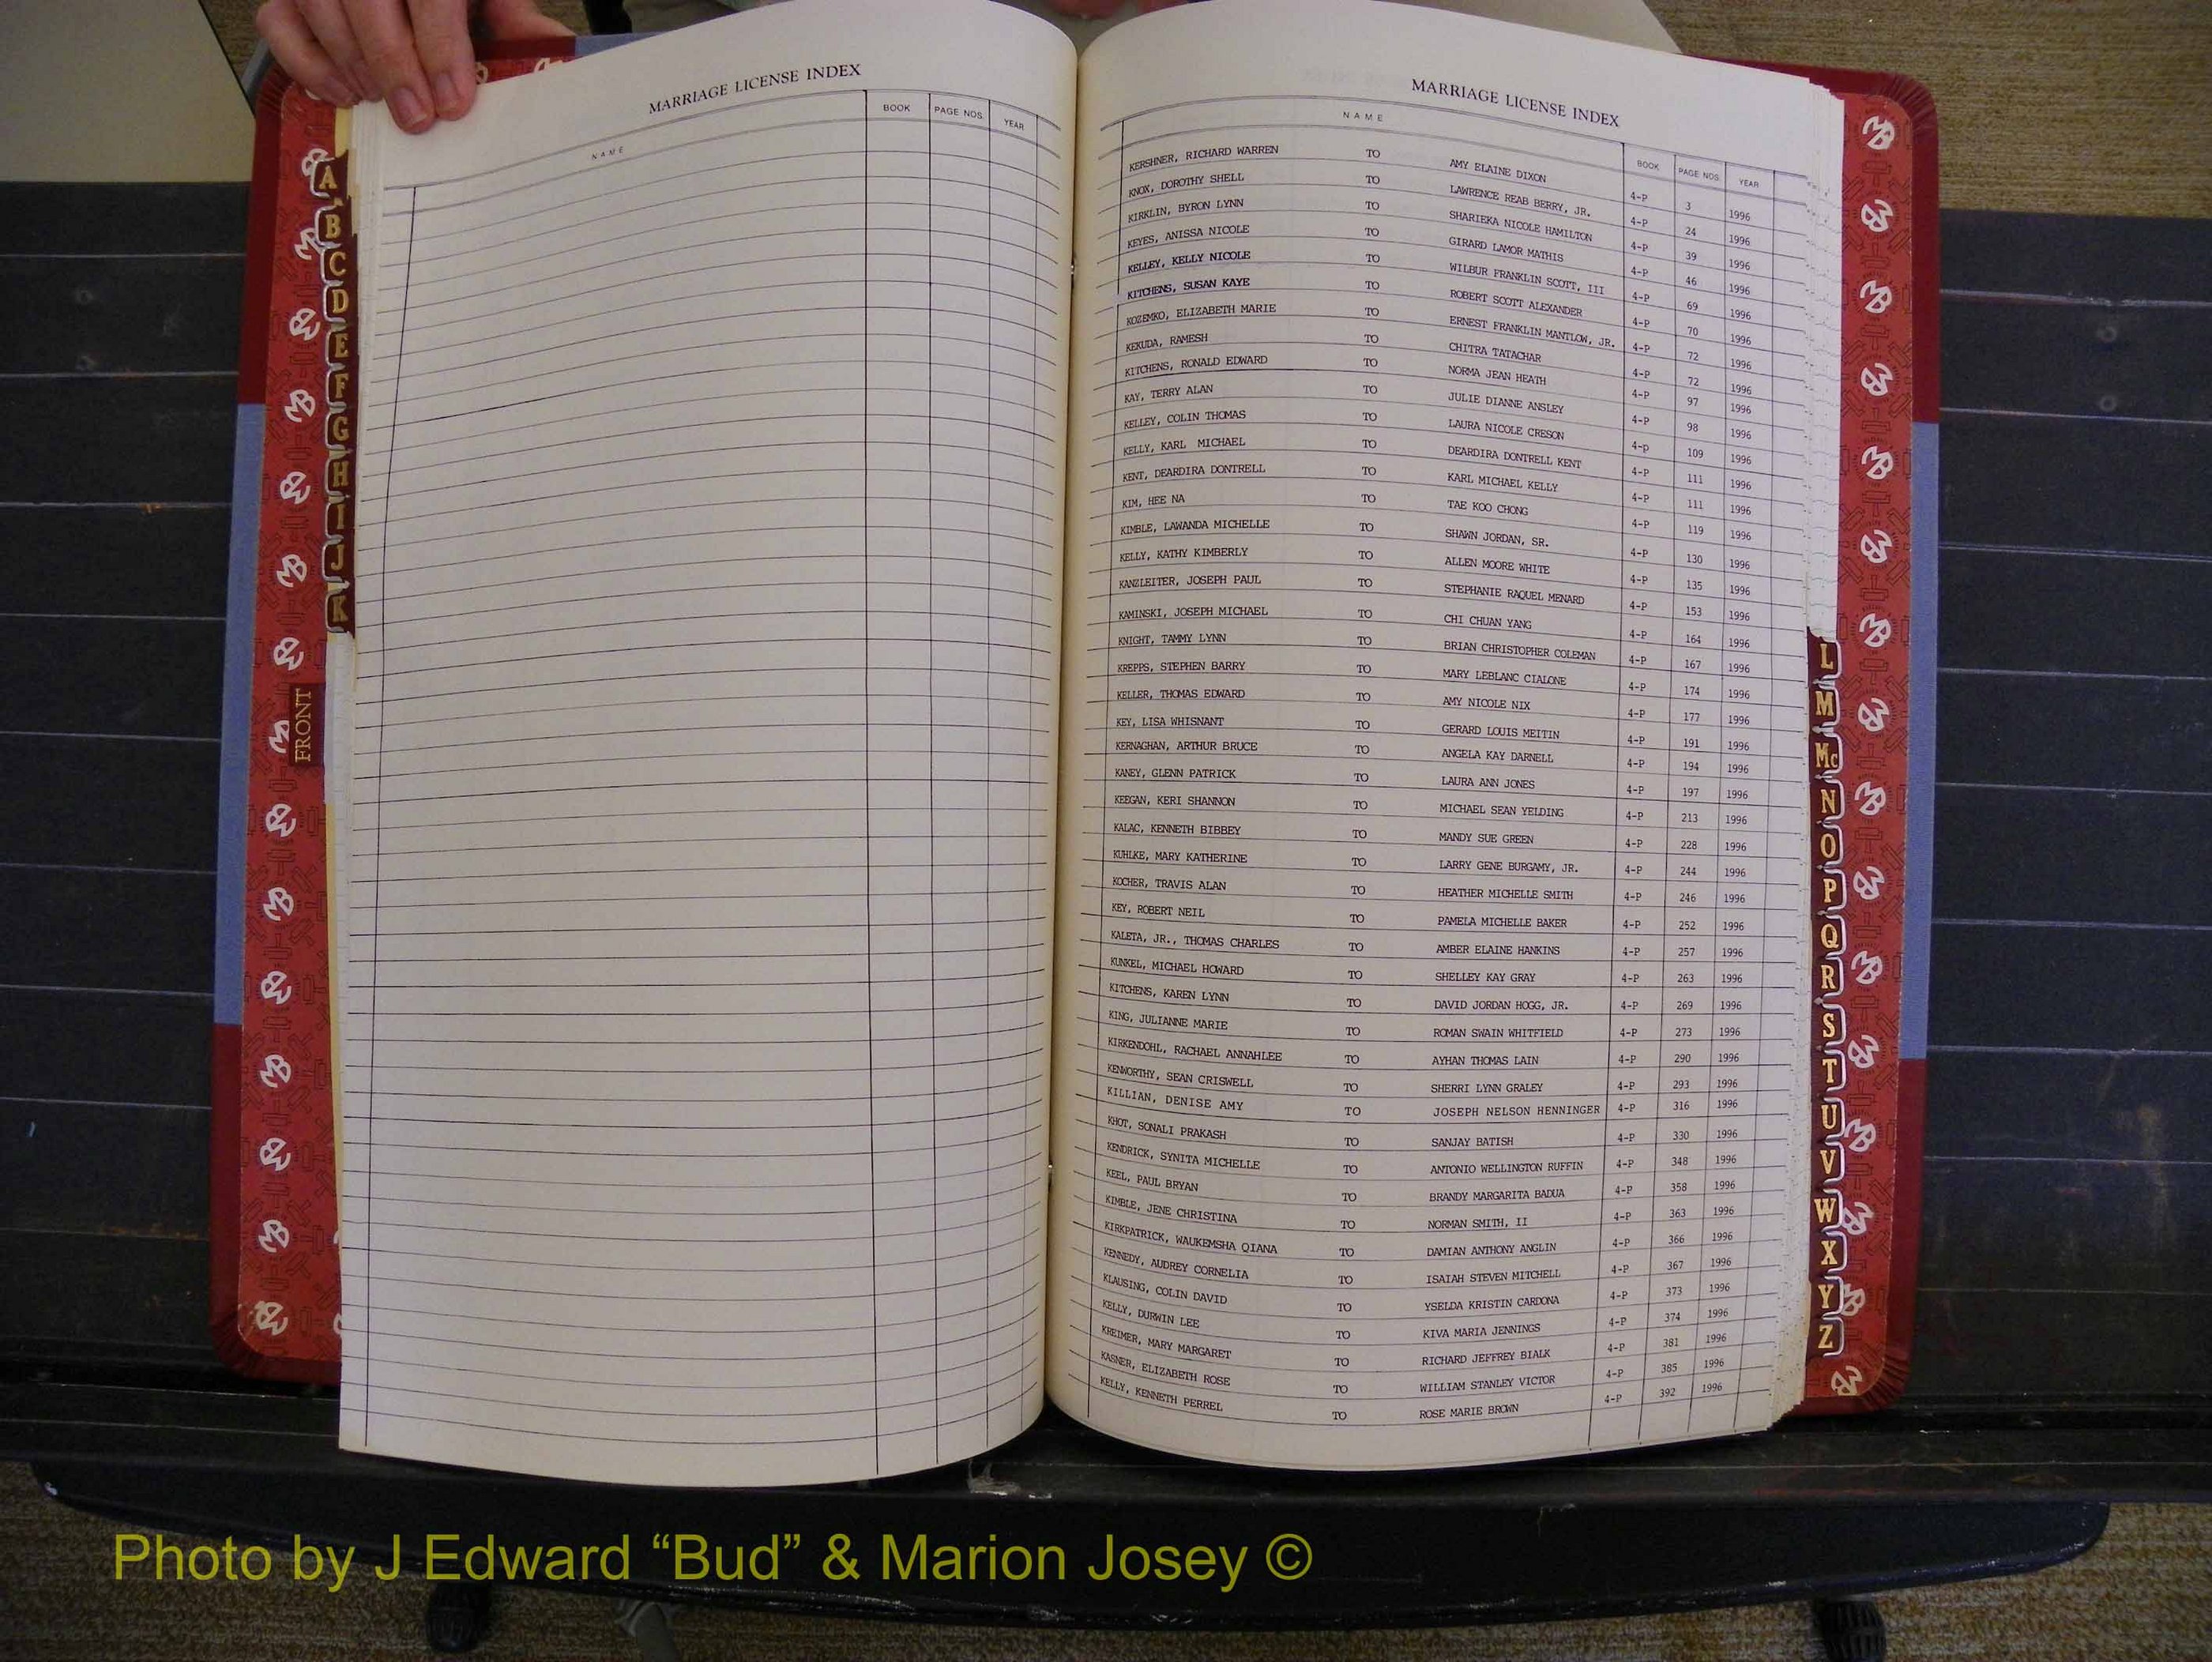 MARRIAGE LICENSE INDEX
NAME BOOK PAGE NOS. YEAR
A
B
C
D
E
F
G
H
I
J
K
FRONT
MARRIAGE LICENSE INDEX
NAME BOOK PAGE NOS. YEAR
KERSHNER, RICHARD WARREN TO AMY ELAINE DIXON 4-P 3 1996
KNOX, DOROTHY SHELL TO LAWRENCE REAB BERRY, JR. 4-P 24 1996
KIRKLIN, BYRON LYNN TO SHARIEKA NICOLE HAMILTON 4-P 39 1996
KEYES, ANISSA NICOLE TO GIRARD LAMOR MATHIS 4-P 46 1996
KELLEY, KELLY NICOLE TO WILBUR FRANKLIN SCOTT, III 4-P 69 1996
KITCHENS, SUSAN KAYE TO ROBERT SCOTT ALEXANDER 4-P 70 1996
KOZEMKO, ELIZABETH MARIE TO ERNEST FRANKLIN MANTLOW, JR. 4-P 72 1996
KEKUDA, RAMESH TO CHITRA TATACHAR 4-P 72 1996
KITCHENS, RONALD EDWARD TO NORMA JEAN HEATH 4-P 97 1996
KAY, TERRY ALAN TO JULIE DIANNE ANSLEY 4-P 98 1996
KELLEY, COLIN THOMAS TO LAURA NICOLE CRESON 4-p 109 1996
KELLY, KARL MICHAEL TO DEARDIRA DONTRELL KENT 4-P 111 1996
KENT, DEARDIRA DONTRELL TO KARL MICHAEL KELLY 4-P 111 1996
KIM, HEE NA TO TAE KOO CHONG 4-P 119 1996
KIMBLE, LAWANDA MICHELLE TO SHAWN JORDAN, SR. 4-P 130 1996
KELLY, KATHY KIMBERLY TO ALLEN MOORE WHITE 4-P 135 1996
KANZLEITER, JOSEPH PAUL TO STEPHANIE RAQUEL MENARD 4-P 153 1996
KAMINSKI, JOSEPH MICHAEL TO CHI CHUAN YANG 4-P 164 1996
KNIGHT, TAMMY LYNN TO BRIAN CHRISTOPHER COLEMAN 4-P 167 1996
KREPPS, STEPHEN BARRY TO MARY LEBLANC CIALONE 4-P 174 1996
KELLER, THOMAS EDWARD TO AMY NICOLE NIX 4-P 177 1996
KEY, LISA WHISNANT TO GERARD LOUIS MEITIN 4-P 191 1996
KERNAGHAN, ARTHUR BRUCE TO ANGELA KAY DARNELL 4-P 194 1996
KANEY, GLENN PATRICK TO LAURA ANN JONES 4-P 197 1996
KEEGAN, KERI SHANNON TO MICHAEL SEAN YELDING 4-P 213 1996
KALAC, KENNETH BIBBEY TO MANDY SUE GREEN 4-P 228 1996
KUHLKE, MARY KATHERINE TO LARRY GENE BURGAMY, JR. 4-P 244 1996
KOCHER, TRAVIS ALAN TO HEATHER MICHELLE SMITH 4-P 246 1996
KEY, ROBERT NEIL TO PAMELA MICHELLE BAKER 4-P 252 1996
KALETA, JR., THOMAS CHARLES TO AMBER ELAINE HANKINS 4-P 257 1996
KUNKEL, MICHAEL HOWARD TO SHELLEY KAY GRAY 4-P 263 1996
KITCHENS, KAREN LYNN TO DAVID JORDAN HOGG, JR. 4-P 269 1996
KING, JULIANNE MARIE TO ROMAN SWAIN WHITFIELD 4-P 273 1996
KIRKENDOHL, RACHAEL ANNAHLEE TO AYHAN THOMAS LAIN 4-P 290 1996
KENWORTHY, SEAN CRISWELL TO SHERRI LYNN GRALEY 4-P 293 1996
KILLIAN, DENISE AMY TO JOSEPH NELSON HENNINGER 4-P 316 1996
KHOT, SONALI PRAKASH TO SANJAY BATISH 4-P 330 1996
KENDRICK, SYNITA MICHELLE TO ANTONIO WELLINGTON RUFFIN 4-P 348 1996
KEEL, PAUL BRYAN TO BRANDY MARGARITA BADUA 4-P 358 1996
KIMBLE, JENE CHRISTINA TO NORMAN SMITH, II 4-P 363 1996
KIRKPATRICK, WAUKEMSHA QIANA TO DAMIAN ANTHONY ANGLIN 4-P 366 1996
KENNEDY, AUDREY CORNELIA TO ISAIAH STEVEN MITCHELL 4-P 367 1996
KLAUSING, COLIN DAVID TO YSELDA KRISTIN CARDONA 4-P 373 1996
KELLY, DURWIN LEE TO KIVA MARIA JENNINGS 4-P 374 1996
KREIMER, MARY MARGARET TO RICHARD JEFFREY BIALK 4-P 381 1996
KASNER, ELIZABETH ROSE TO WILLIAM STANLEY VICTOR 4-P 385 1996
KELLY, KENNETH PERREL TO ROSE MARIE BROWN 4-P 392 1996
L
M
Mc
N
O
P
Q
R
S
T
U
V
W
X
Y
Z
Photo by J Edward “Bud” & Marion Josey ©